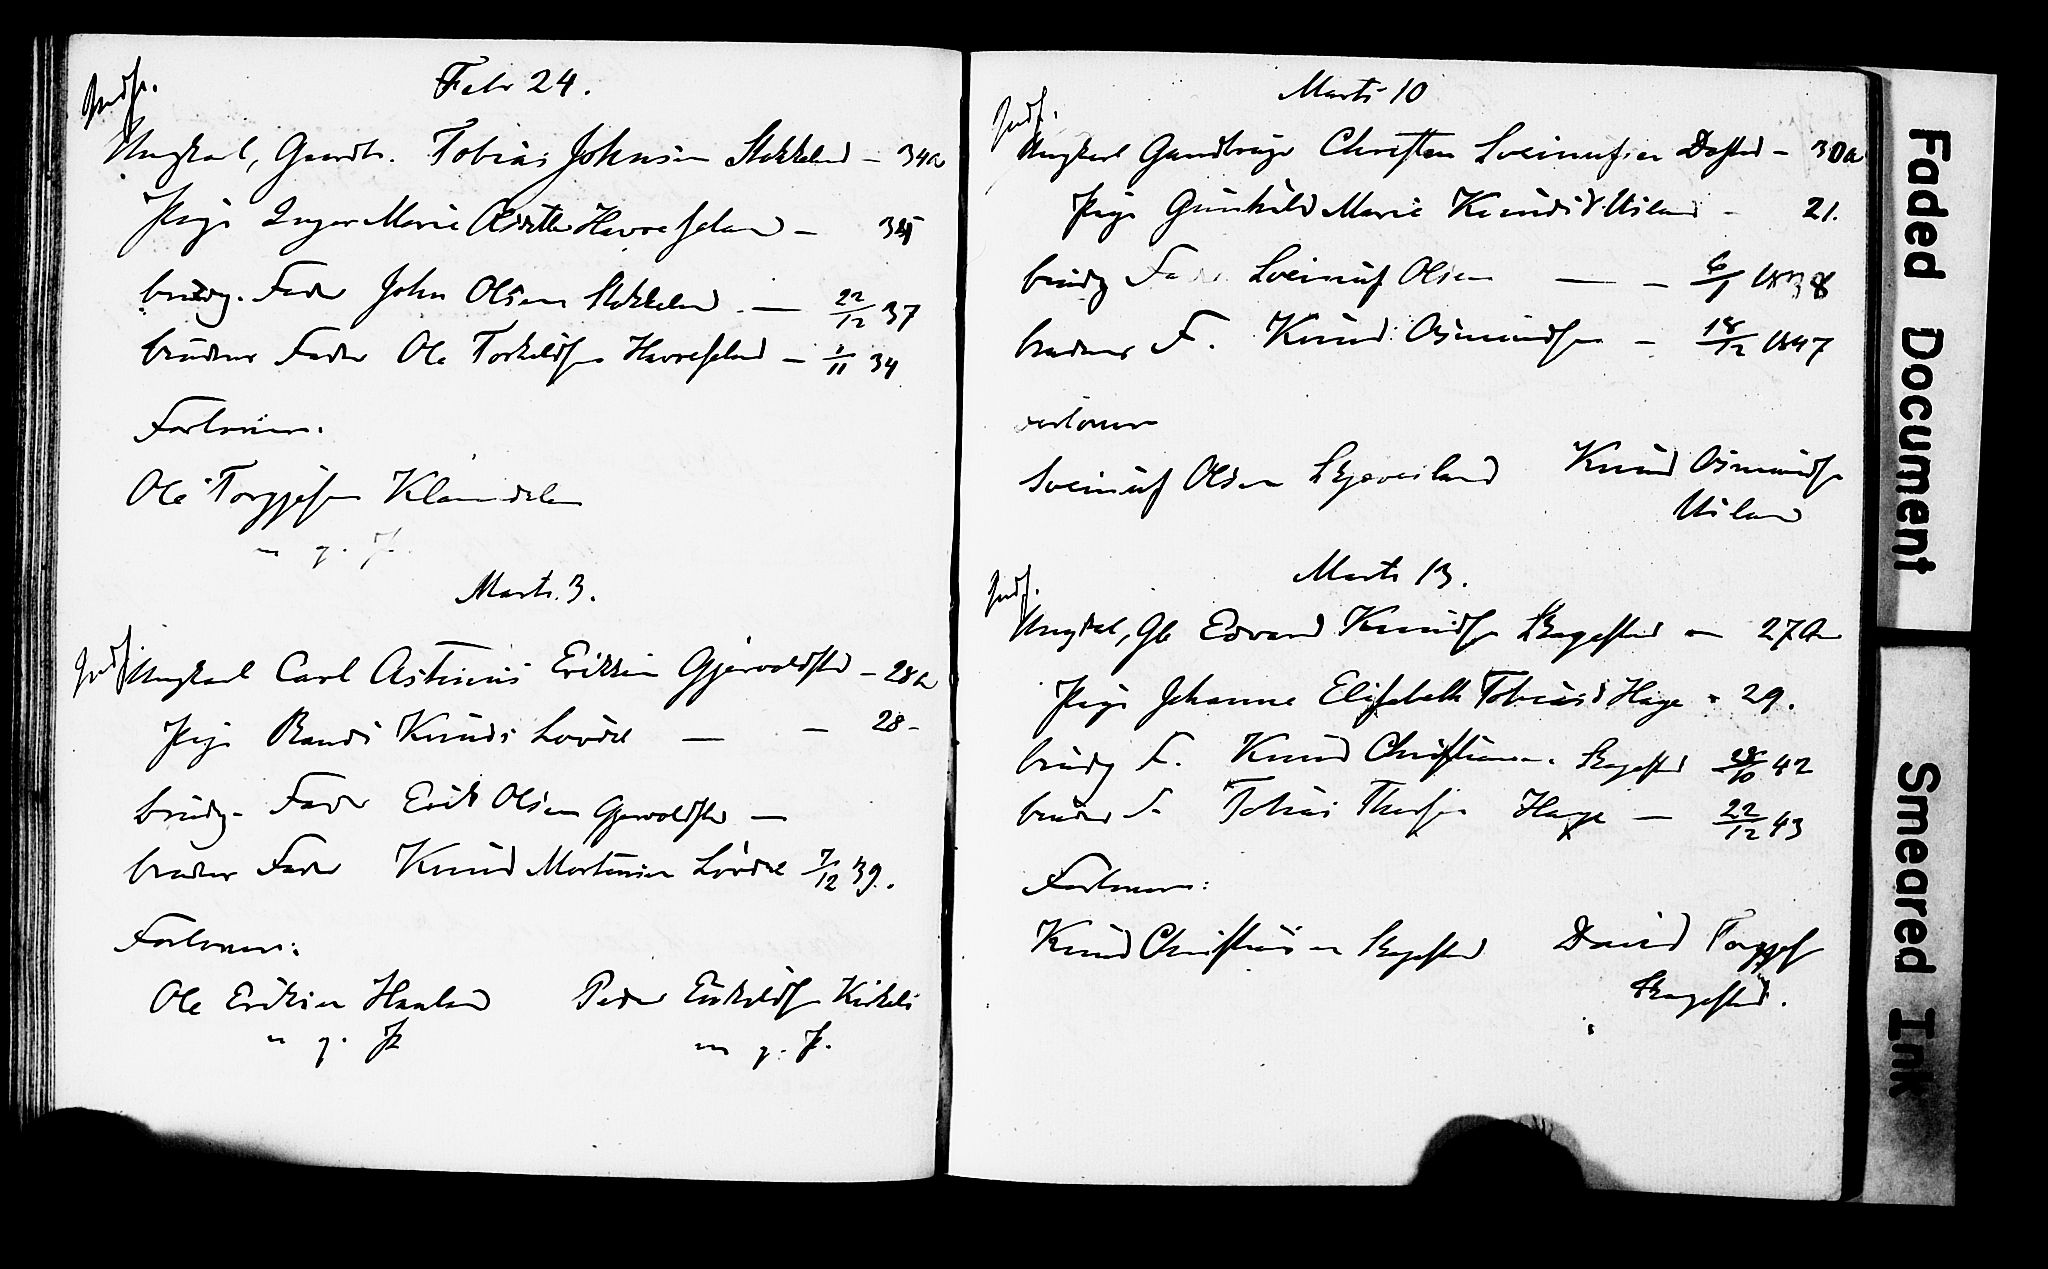 Febr 24.
Indf.
Ungkarl, Gaardb. Tobias Johnsen Stokkeland – 34 a
Pige Inger Marie Olsdatter Havreseland –
brudg. Fader John Olsen Stokkeland – 22/12 37
brudens Fader Ole Torkildsen Havreseland – 1/11 34
Forlovere.
Ole Torgjesen
m. p. P.
Marts 3.
Indf. Ungkarl Carl Astinius Eriksen Gjervoldstad – 28 a
Pige Randi Knuds Løvdal – – 28 –
brudg. Fader Erik Olsen Gjervoldstad –
brudens Fader Knud Mortensen Løvdal 7/12 39.
Forlovere:
Ole Eriksen Haaland Peder Kirkeli
m. p. P. m. p. P.
Marts 10
Indf.
Ungkarl Gaardbruger Christen Sveinufsen – 30 a
Pige Gunhild Marie Knudsd. Usland – 21.
brudg Fader Sveinuf Olsen – – 6/1 1838
brudens F. Knud Osmundsen – 18/12 1847
Forlovere
Sveinuf Olsen Skjeveland Knud Osmundsen
Usland
Marts 13.
Indf.
Ungkarl, Gb Edvard Knudsen Skagestad – 27 a
Pige Johanne Elisabeth Tobiasd Hage – 29.
brudg F. Knud Christiansen Skagestad 42
brudens F. Tobias Hage – 22/12 43
Forlovere:
Knud Christiansen Skagestad David Torgjes
Skagestad.
Faded Document
Smeared Ink